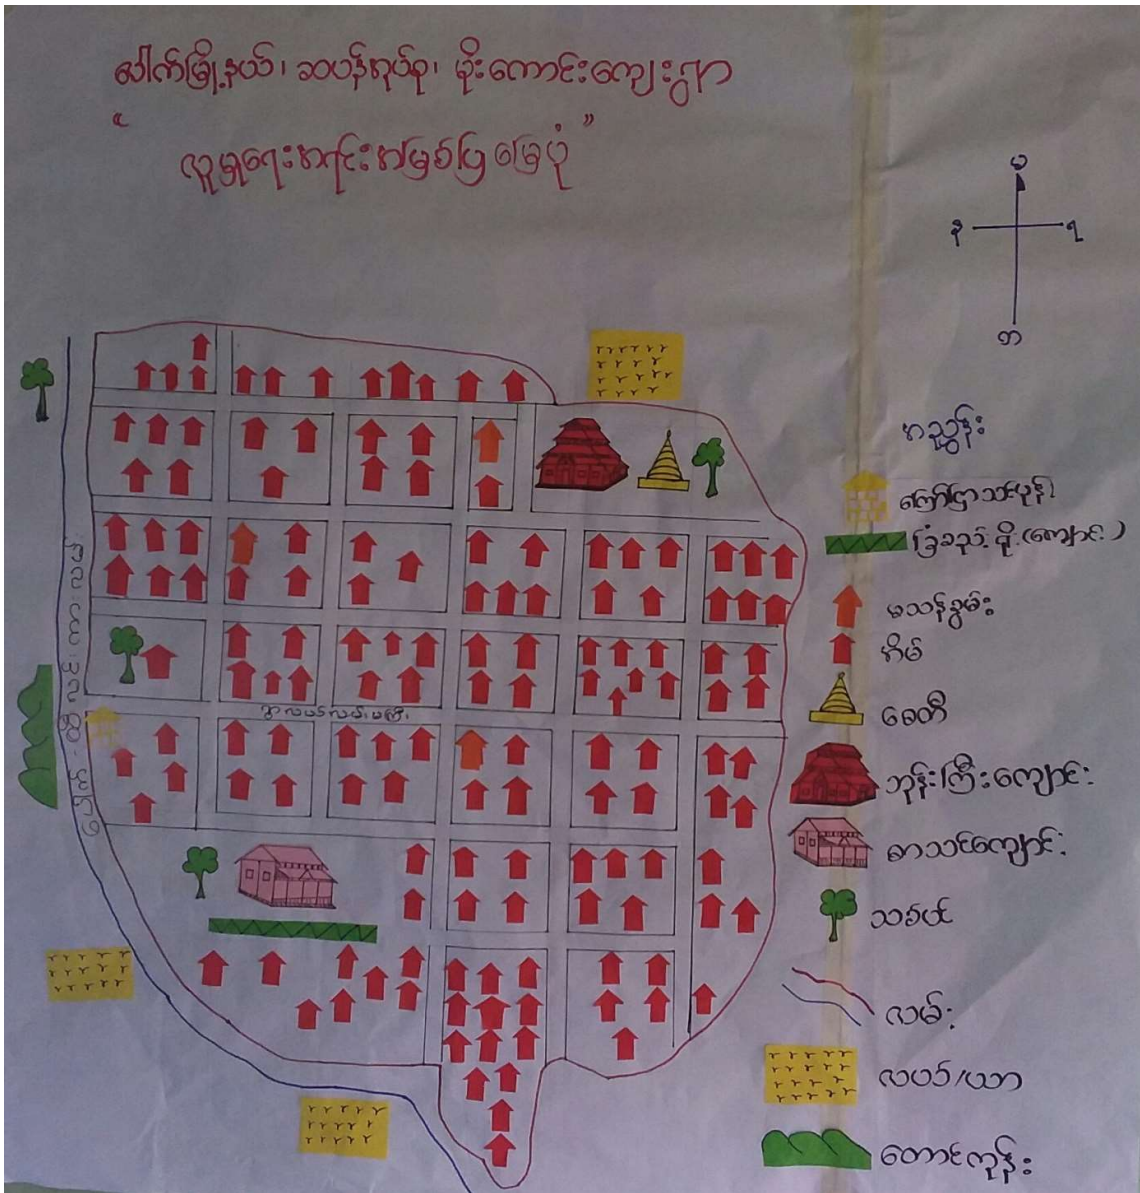 ပေါက်မြို့နယ်၊ ဆပန်အုပ်စု၊ မိုးကောင်းကျေးရွာ
“ လူမှုရေးအရင်းအမြစ်ပြ မြေပုံ ”
မ
န
ရ
တ
အညွှန်း
ကြော်ငြာသင်းပုန်း
ခြံစည်းရိုး (ကျောင်း)
မသန်စွမ်း
အိမ်
စေတီ
ဘုန်းကြီးကျောင်း
စာသင်ကျောင်း
သစ်ပင်
လမ်း
လယ်/ယာ
တောင်ကုန်း
ရွာလယ်လမ်းမကြီး